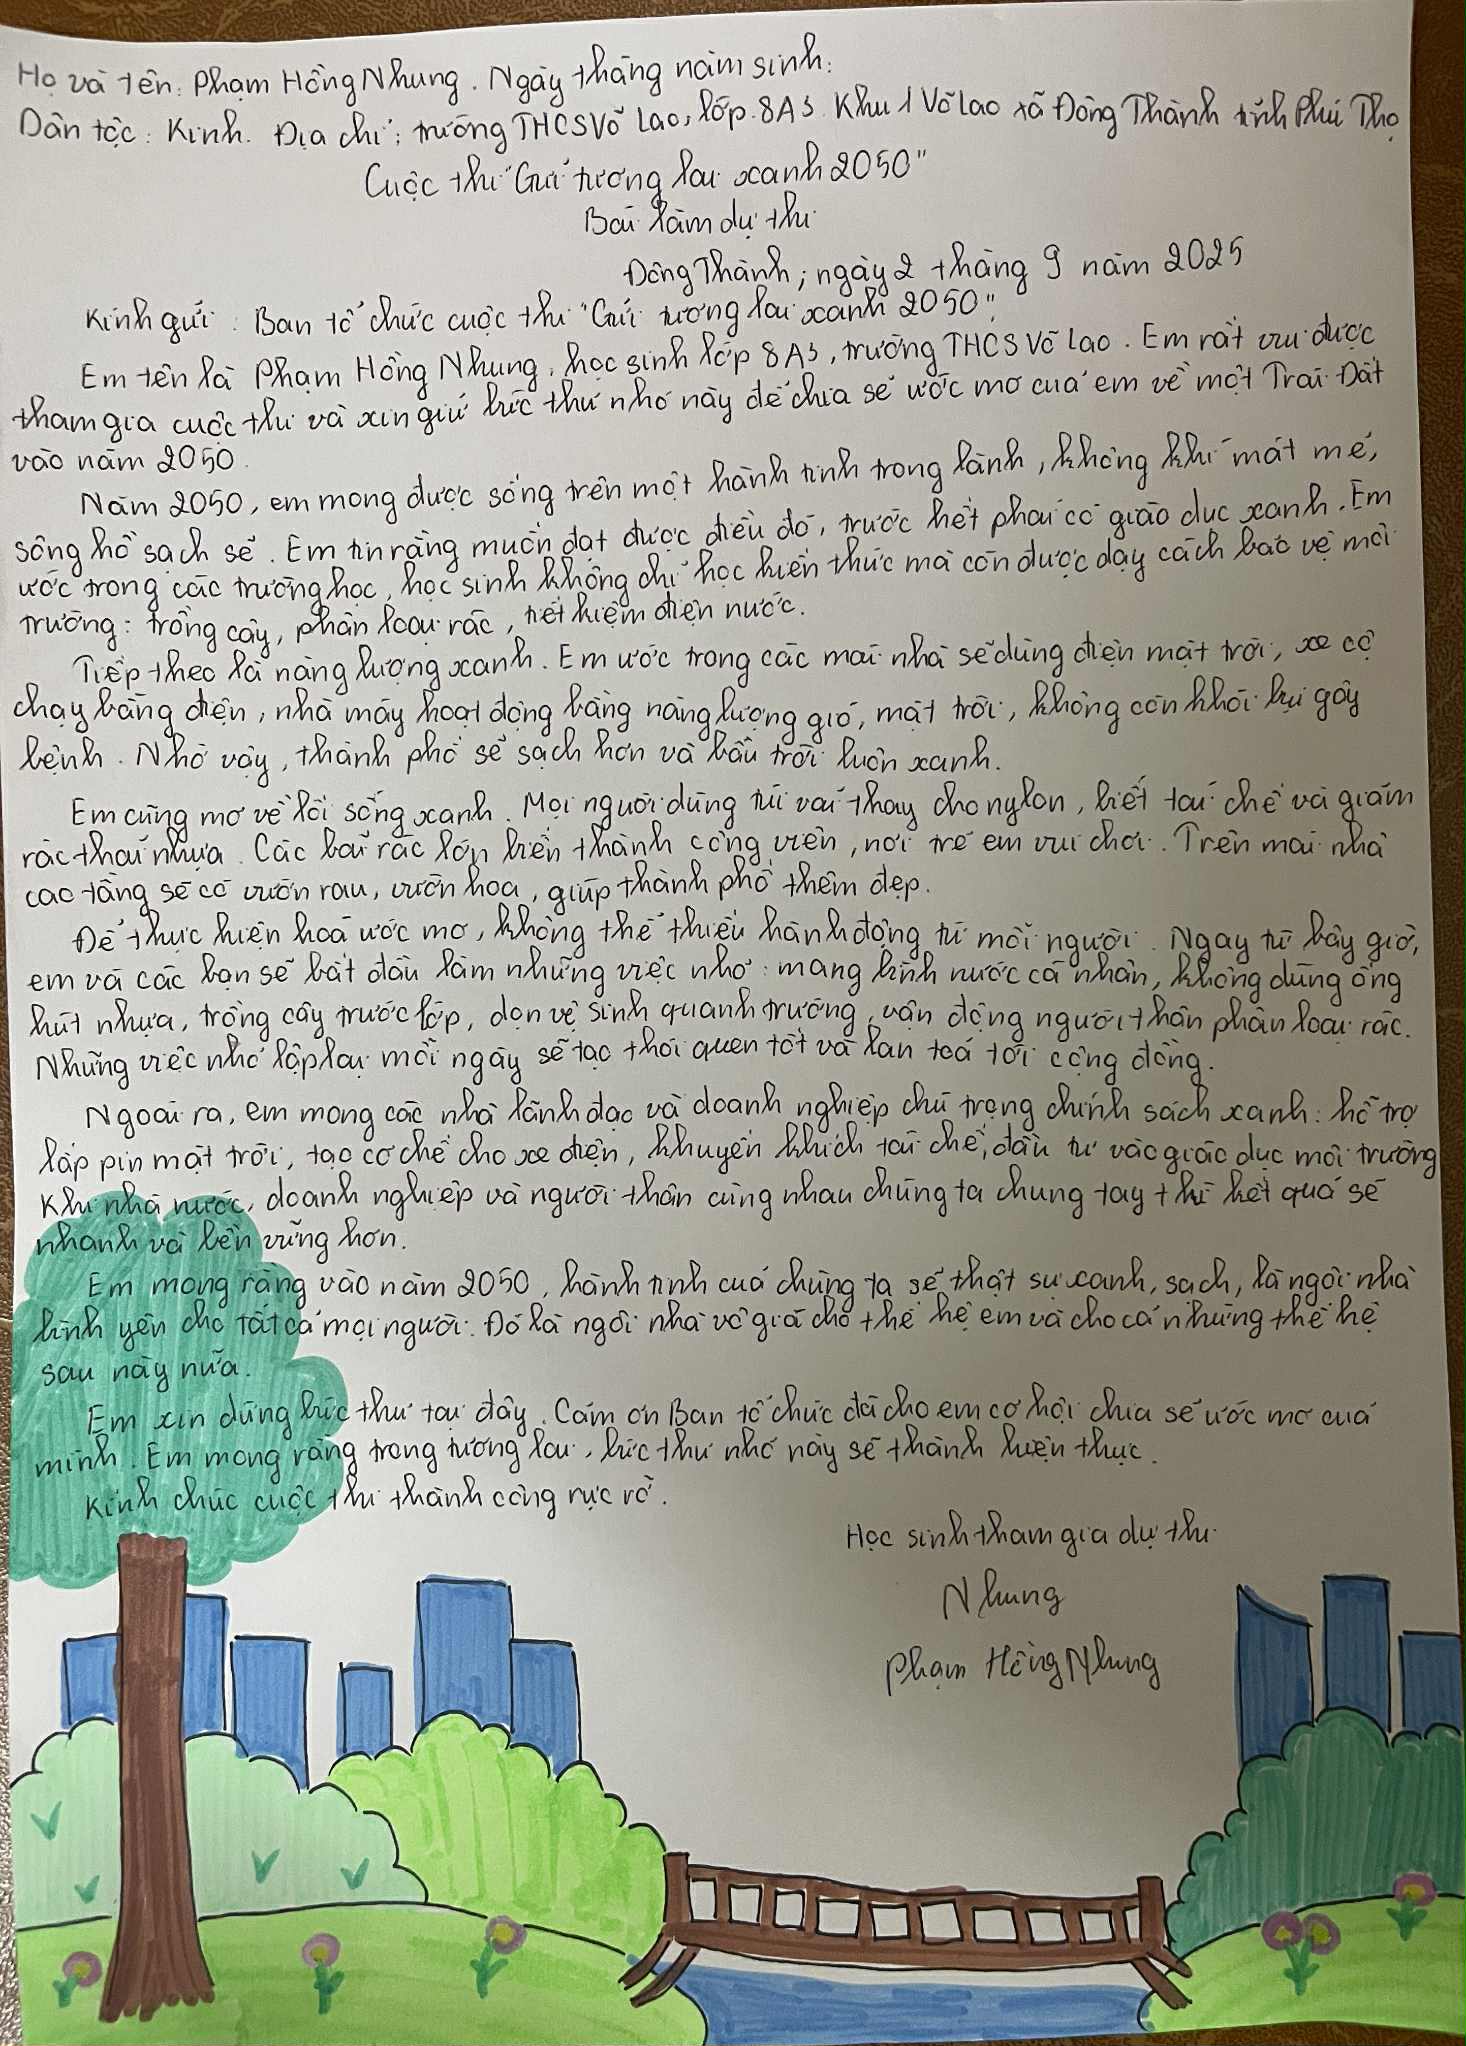 Họ và tên: Phạm Hồng Nhung. Ngày tháng năm sinh:
Dân tộc: Kinh. Địa chỉ: trường THCS Võ Lao, lớp 8A3 Khu 1 Võ Lao xã Đông Thành tỉnh Phú Thọ
Cuộc thi "Gửi tương lai xanh 2050"
Bài làm dự thi
Đông Thành, ngày 2 tháng 9 năm 2025
Kính gửi: Ban tổ chức cuộc thi "Gửi tương lai xanh 2050"
Em tên là Phạm Hồng Nhung, học sinh lớp 8A3, trường THCS Võ Lao. Em rất vui được
tham gia cuộc thi và xin giử bức thư nhỏ này để chia sẻ ước mơ của em về một Trái Đất
vào năm 2050.
Năm 2050, em mong được sống trên một hành tinh trong lành, không khí mát mẻ,
sông hồ sạch sẽ. Em tin rằng muốn đạt được điều đó, trước hết phải có giáo dục xanh. Em
ước trong các trường học, học sinh không chỉ học kiến thức mà còn được dạy cách bảo vệ môi
trường: trồng cây, phân loại rác, tiết kiệm điện nước.
Tiếp theo là năng lượng xanh. Em ước trong các mái nhà sẽ dùng điện mặt trời, xe cộ
chạy bằng điện, nhà máy hoạt động bằng năng lượng gió, mặt trời, không còn khói bụi gây
bệnh. Nhờ vậy, thành phố sẽ sạch hơn và bầu trời luôn xanh.
Em cũng mơ về lối sống xanh. Mọi người dùng túi vải thay cho nylon, biết tái chế và giảm
rác thải nhựa. Các bãi rác lớn biến thành công viên, nơi trẻ em vui chơi. Trên mái nhà
cao tầng sẽ có vườn rau, vườn hoa, giúp thành phố thêm đẹp.
Để thực hiện hoá ước mơ, không thể thiếu hành động từ mỗi người. Ngay từ bây giờ,
em và các bạn sẽ bắt đầu làm những việc nhỏ: mang bình nước cá nhân, không dùng ống
hút nhựa, trồng cây trước lớp, dọn vệ sinh quanh trường, vận động người thân phân loại rác.
Những việc nhỏ lặp lại mỗi ngày sẽ tạo thói quen tốt và lan toả tới cộng đồng.
Ngoài ra, em mong các nhà lãnh đạo và doanh nghiệp chú trọng chính sách xanh: hỗ trợ
lắp pin mặt trời, tạo cơ chế cho xe điện, khuyến khích tái chế, đầu tư vào giáo dục môi trường
Khi nhà nước, doanh nghiệp và người thân cùng nhau chúng ta chung tay thì kết quả sẽ
nhanh và bền vững hơn.
Em mong rằng vào năm 2050, hành tinh của chúng ta sẽ thật sự xanh, sạch, là ngôi nhà
bình yên cho tất cả mọi người. Đó là ngôi nhà vô giá cho thế hệ em và cho cả những thế hệ
sau này nữa.
Em xin dừng bức thư tại đây. Cảm ơn Ban tổ chức đã cho em cơ hội chia sẻ ước mơ của
mình. Em mong rằng trong tương lai, bức thư nhỏ này sẽ thành hiện thực.
Kính chúc cuộc thi thành công rực rỡ.
Học sinh tham gia dự thi
Nhung
Phạm Hồng Nhung